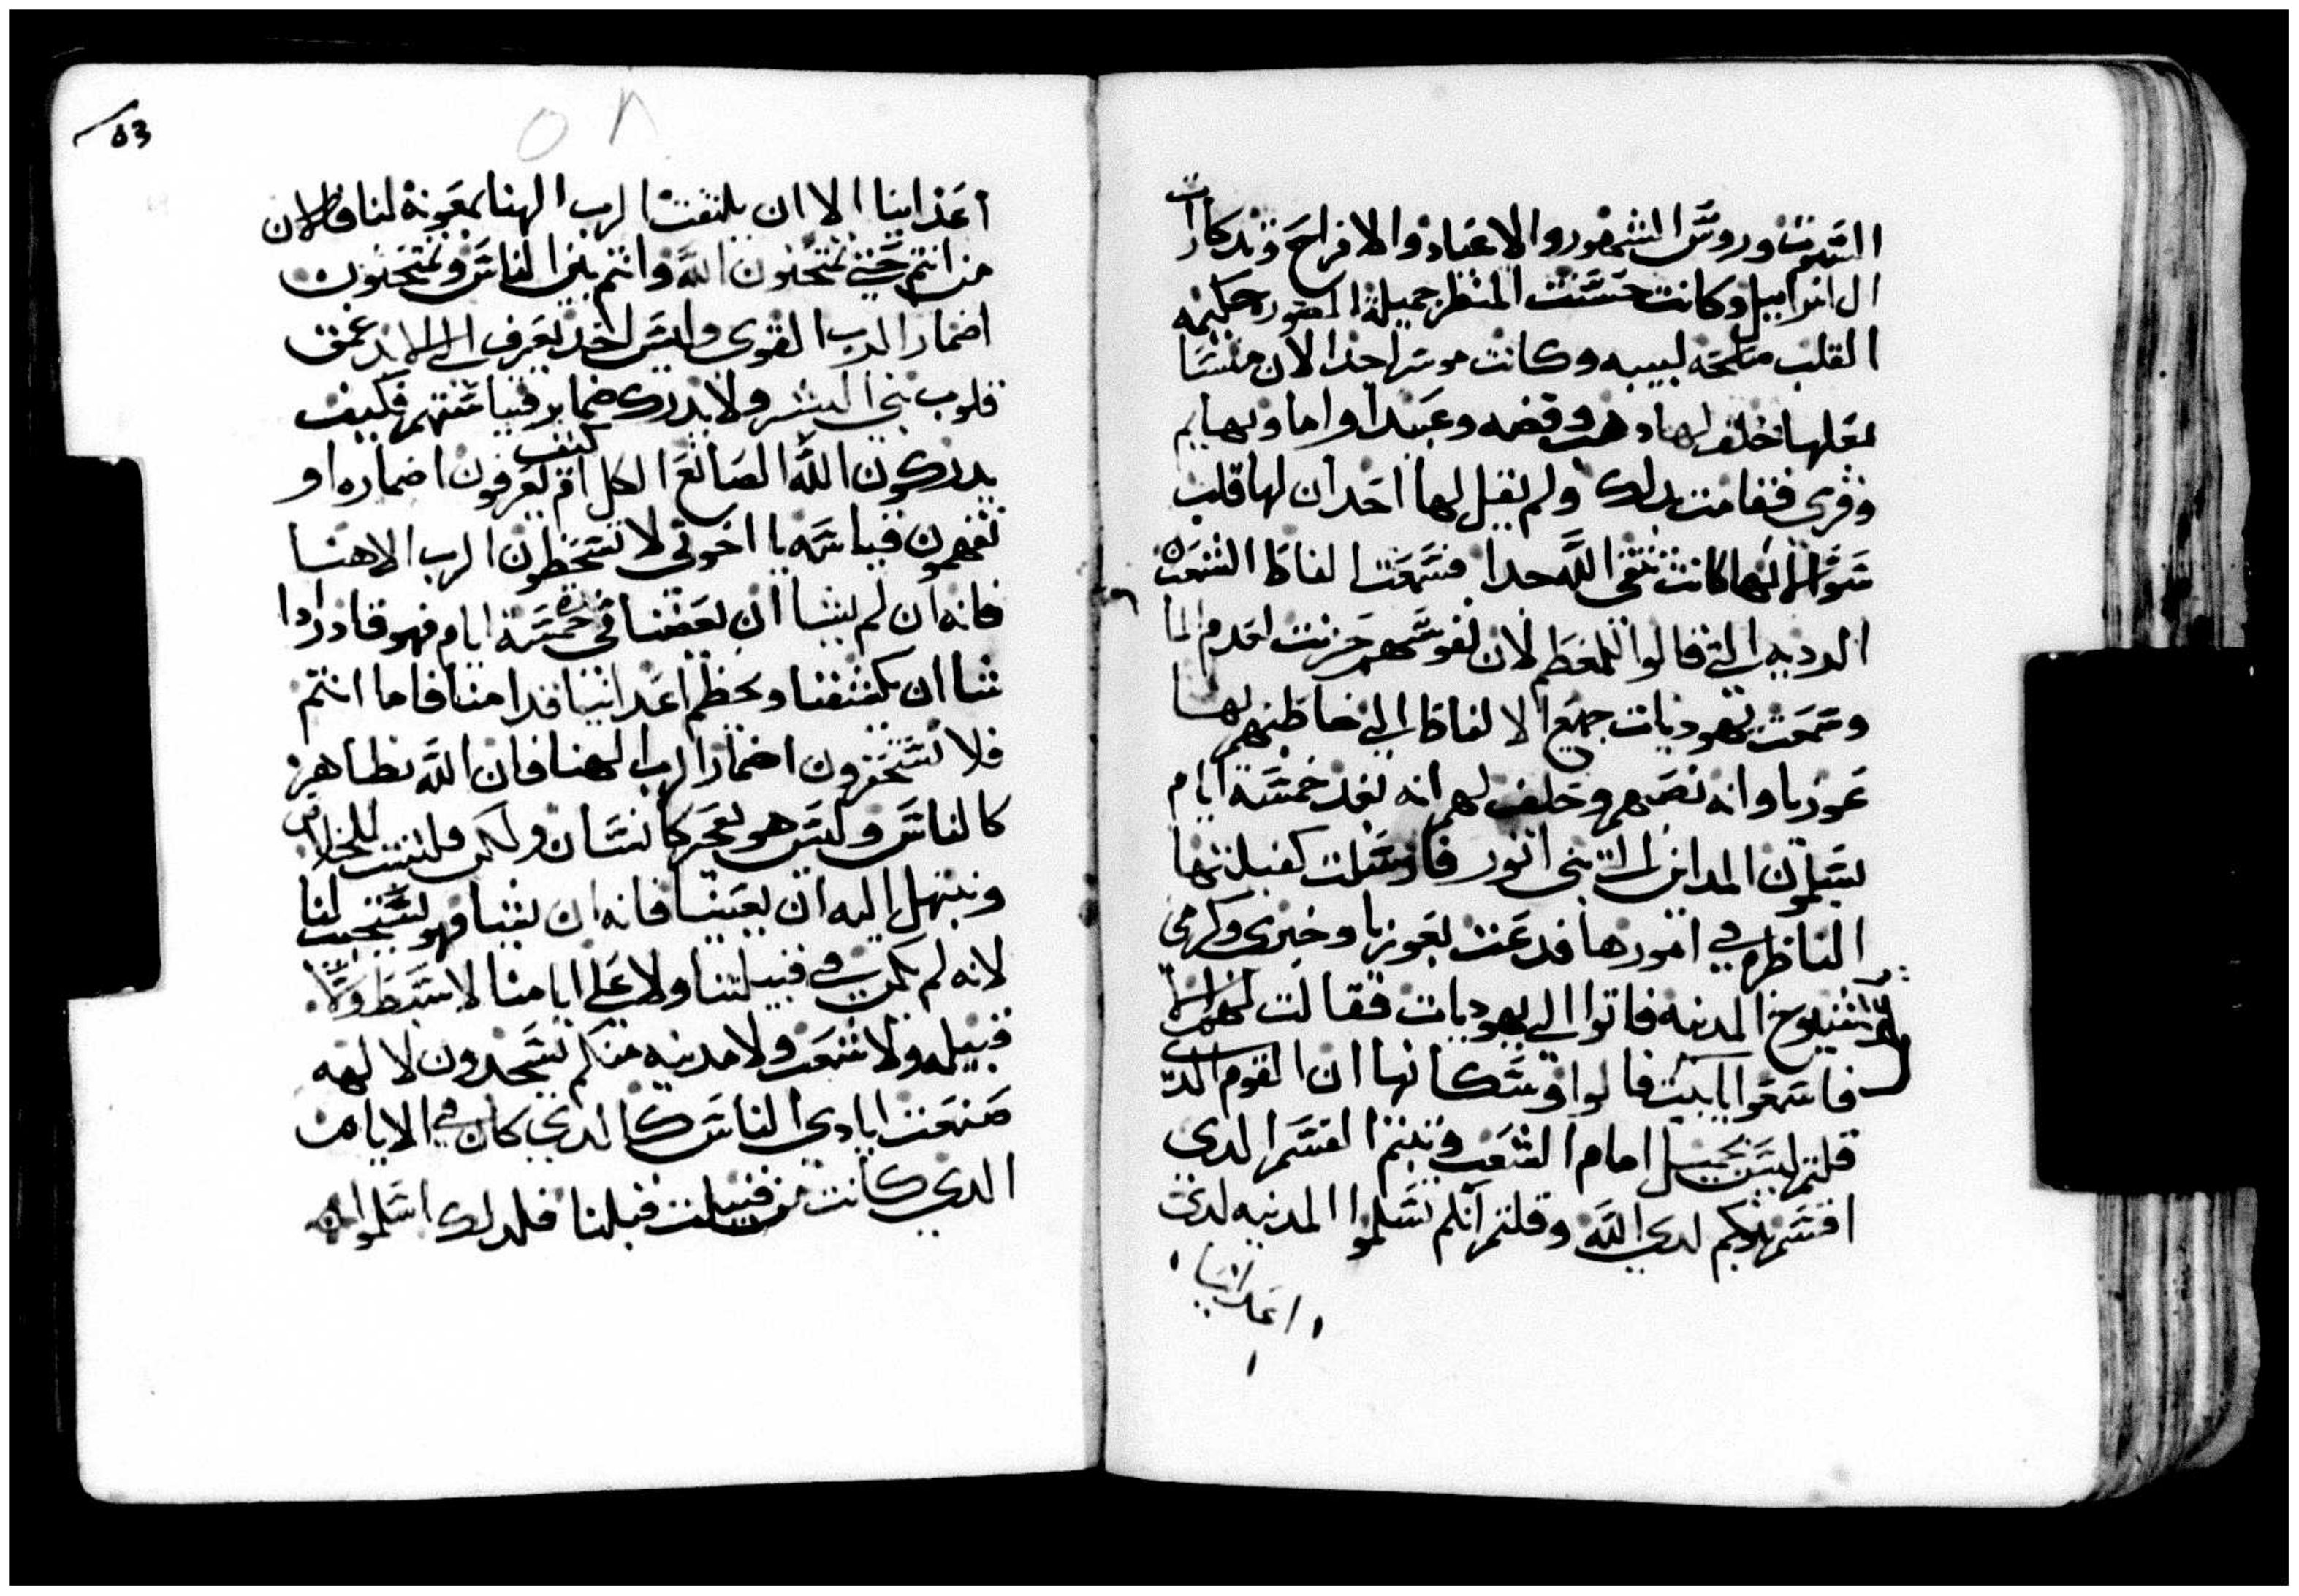 السبوت وروس الشهور والاعياد والافراح وتدكارات
ال اسراييل وكانت حسنت المنظر جميلة الصوره حكيمه
القلب متلمحه لبيبه وكانت موسره جدا لان منسا
بعلها خلف لها دهب وفضه وعبيدا واما وبهايم
وقري فقامت بدلك ولم يقيل لها احد ان لها قلب
سو لانها كانت تتقي الله جدا فسمعت الفاظ الشعب
الرديه التي قالوا للمعظم لان نفوسهم حزنت لعدم الما
وسمعت يهوديات جميع الالفاظ التي خاطبهم بها
عوزيا وانه نصهم وحلف لهم انه بعد خمسة ايام
يسلمون المداين الي بني اتور فارسلت كفيلتها
الناظره في امورها فدعت بعوزيا وخبري وكرمي
شيوخ المدينه فاتوا الي يهوديات فقالت لهم
فاسمعوا يا بيت فالوا وسكانها ان القوم الدي
قلتم ليس بجيل امام الشعب وتبتم القسم الدي
اقسمتوكم لدي الله وقلتم انكم تسلموا المدينه لدي
اعداينا
53
٥٨
اعداينا الا ان يلتفت الرب الهنا بمعونة لنا فالان
من انتم حتي تمتحنون الله وانتم بني الناس وتمتحنون
اضمار الرب القوي وليس احد يعرف الي الابد عمق
قلوب بني البشر ولا يدرك ضماير قياستهم فكيف
يدركون الله الصانع الكل ام كيف تعرفون اضماره او
تفهمون قياسه يا اخوتي لا تسخطون الرب الاهنا
فانه ان لم يشا ان يعضنا في خمسة ايام فهو قادر ادا
شا ان يكشفنا ويحطم اعداينا قدامنا فاما انتم
فلا تستحقرون اضمار الرب الهنا فان الله يظاهر
كالناس وليس هو يعجر كانسان ولكن فلنثبت للخلاص
ونبتهل اليه ان يعيننا فانه ان يشا فهو يستجيب لنا
لانه لم يكن في قبيلتنا ولا علي ايامنا لا سبط ولا
قبيله ولا شعب ولا مدينه منكم يسجدون لالهه
صنعت ايادي الناس كالدي كان في الايام
الدي كانت من قبيلت قبلنا فلدلك اسلموا